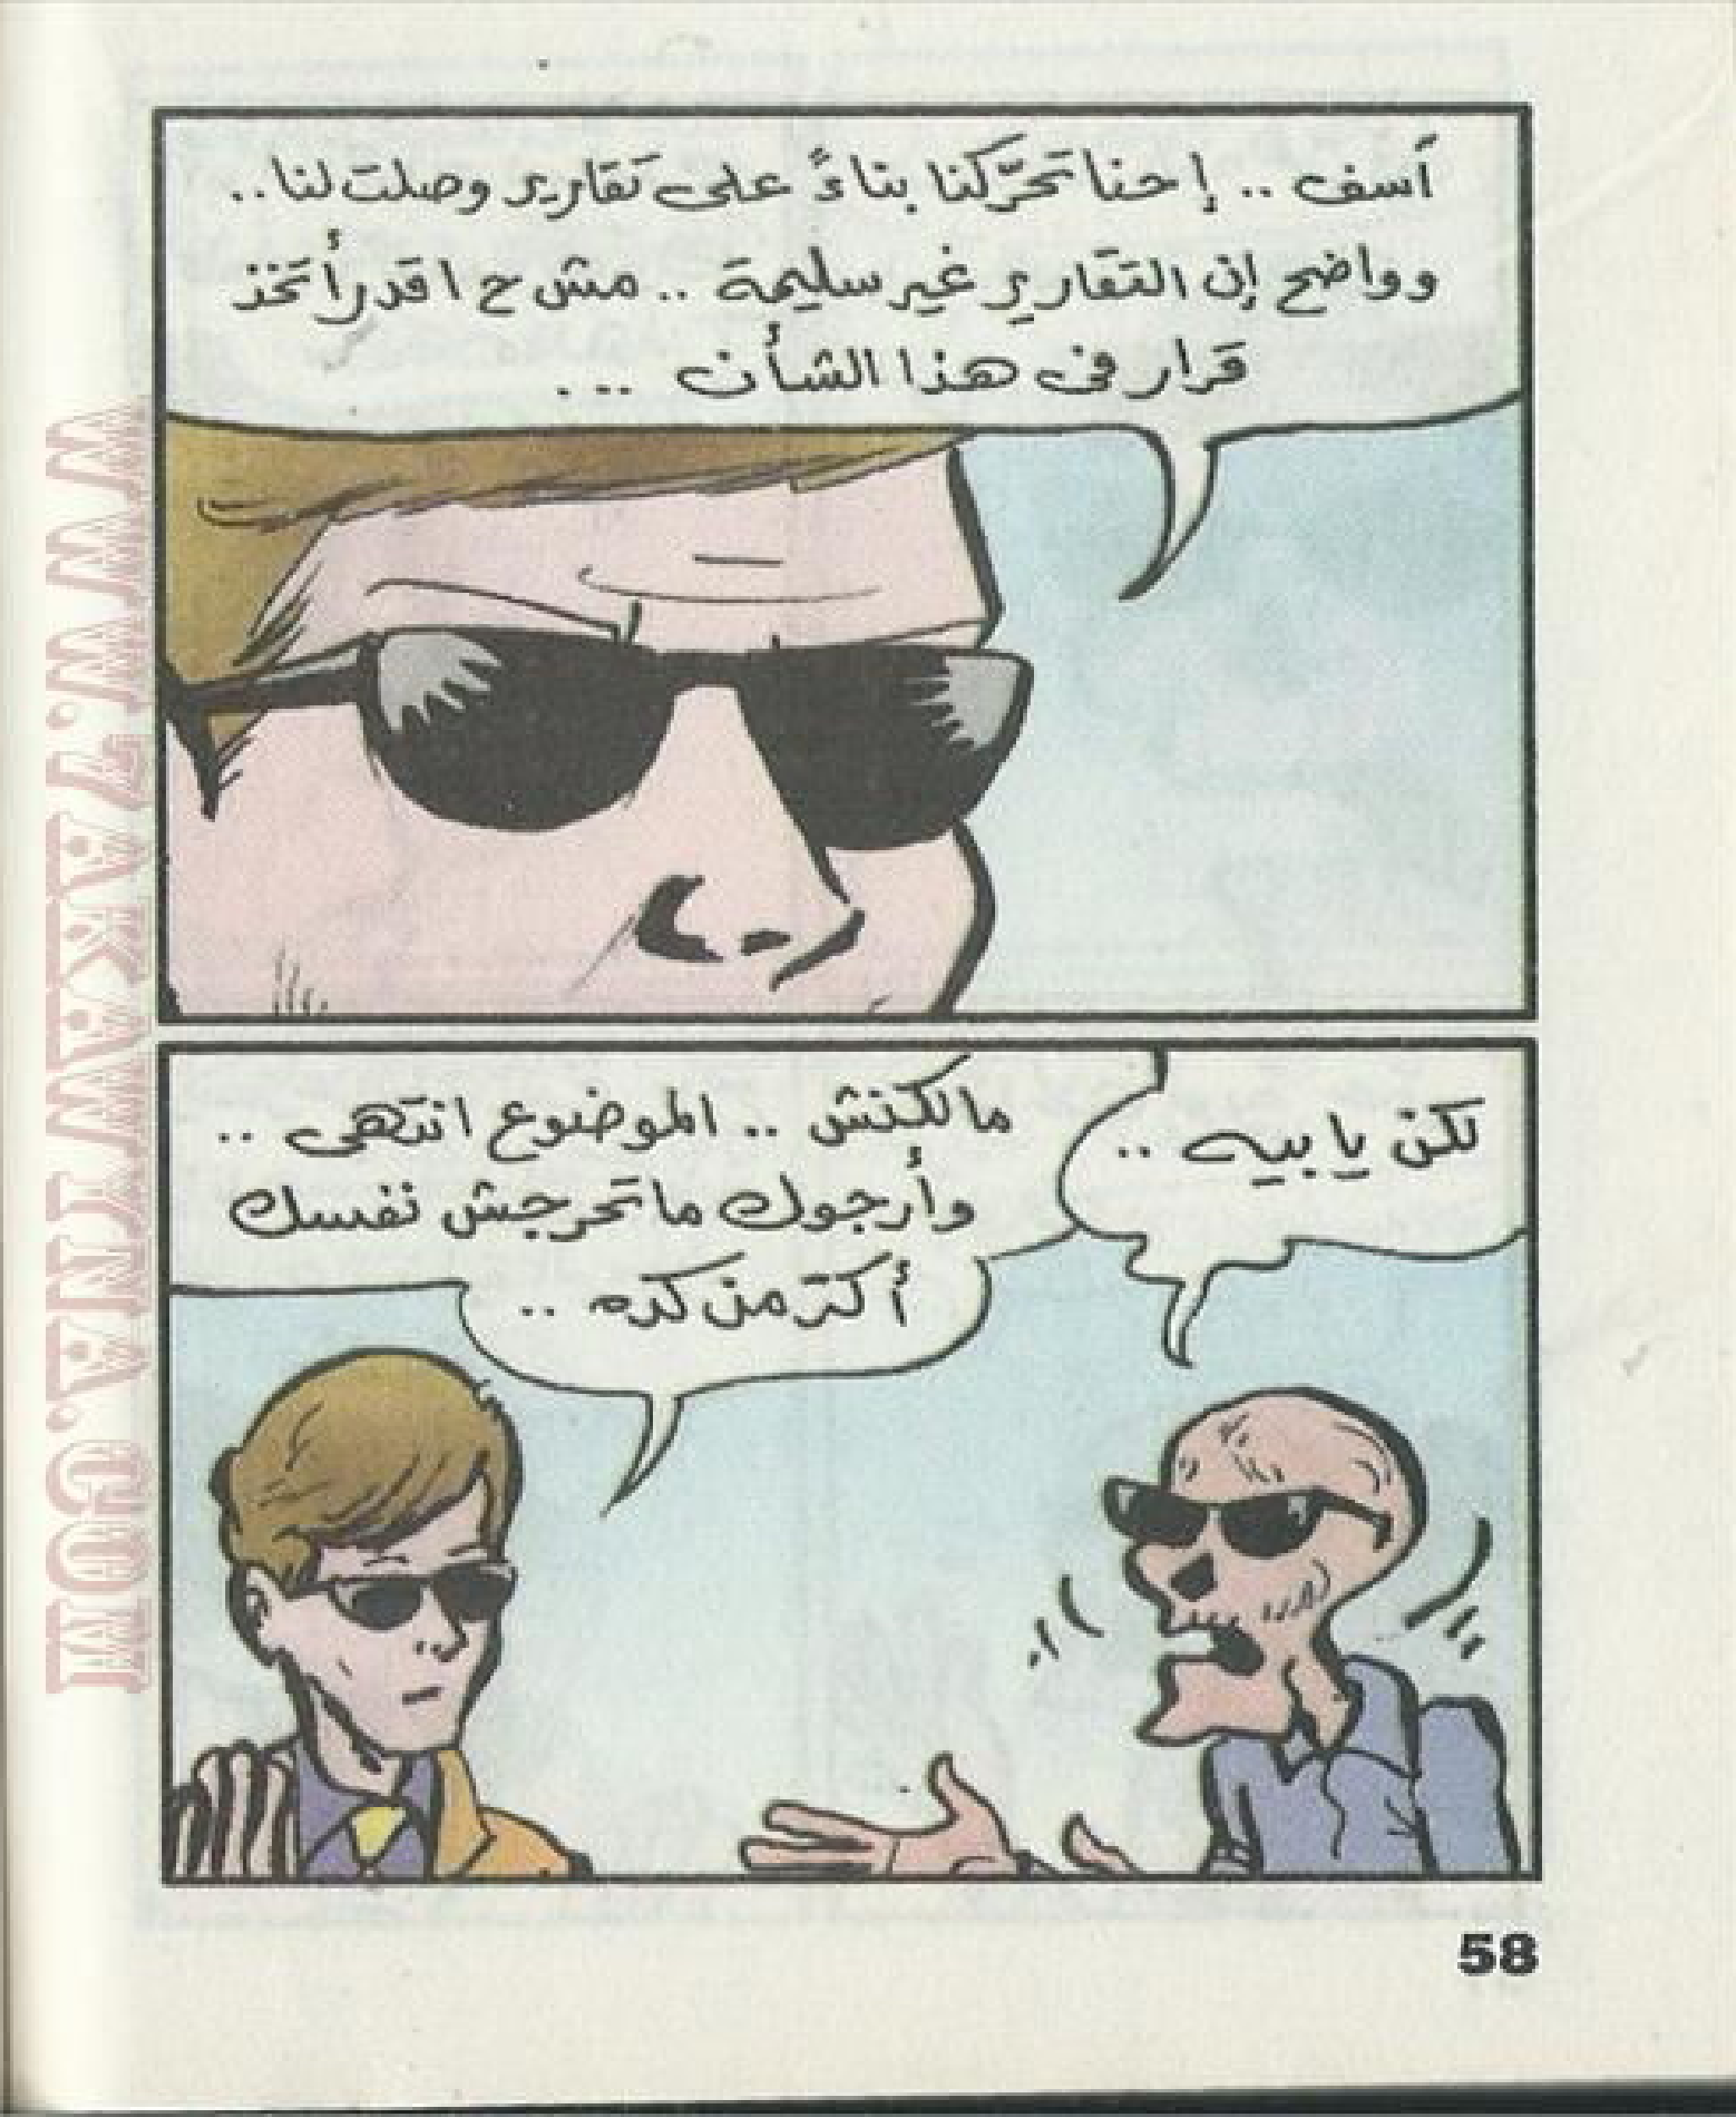 آسف .. إحنا تحرّكنا بناءً على تقارير وصلت لنا ..
وواضح إن التقارير غير سليمة .. مش ح اقدر أتخذ
قرار فى هذا الشأن ...
لكن يا بيه ..
مالكنش .. الموضوع انتهى ..
وأرجوك ماتحرجش نفسك
أكتر من كده ..
58
WWW.7AKAWYNA.COM